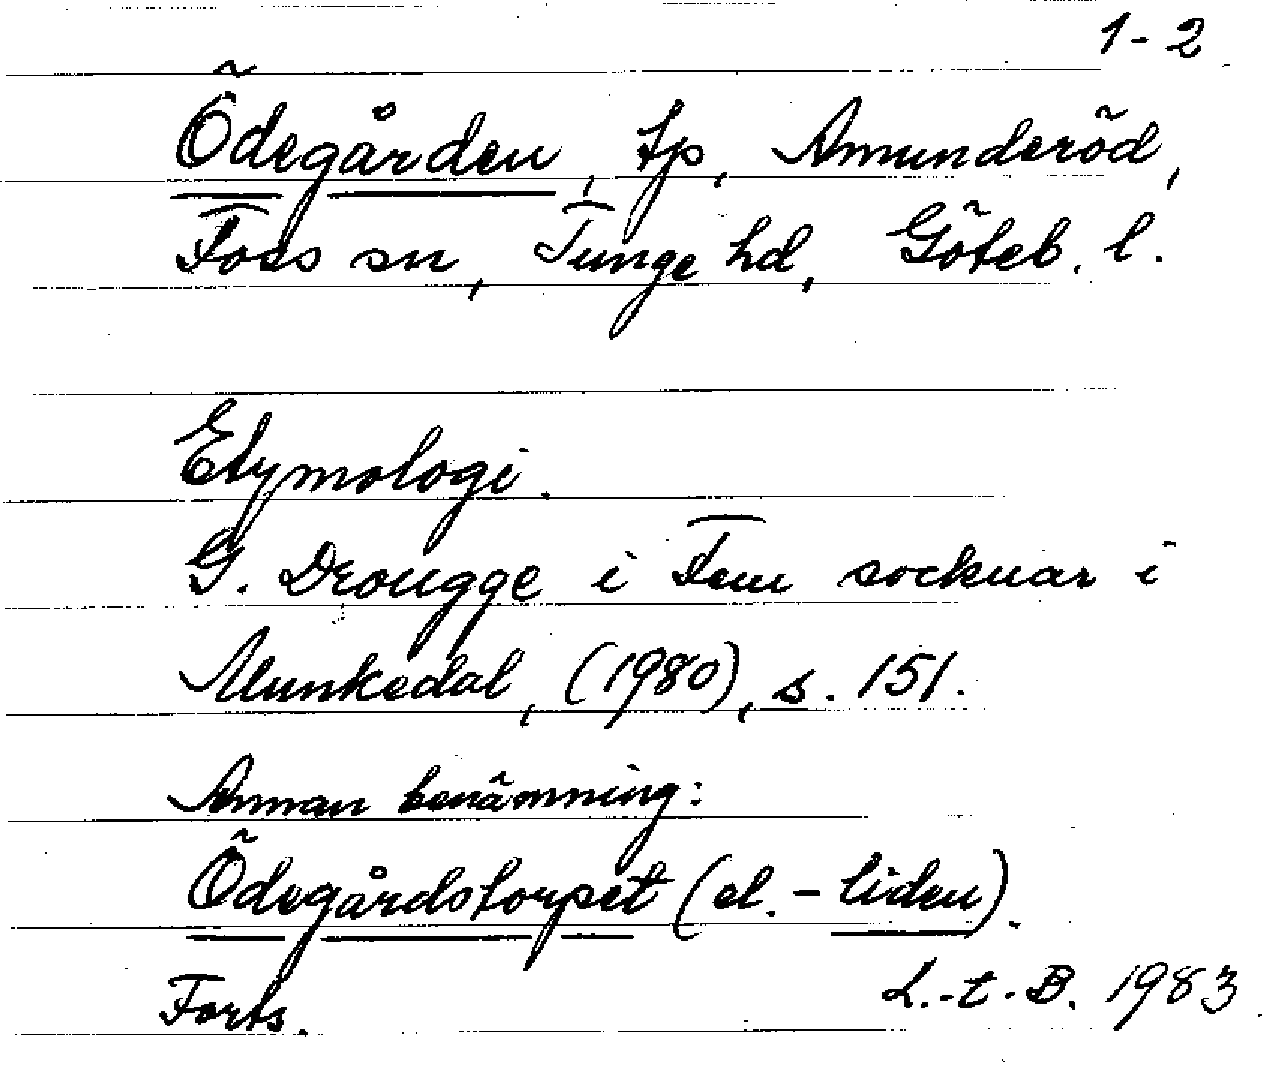 1-2
Ödegården, tp, Amunderöd,
Foss sn, Tunge hd, Göteb. l.
Etymologi.
G. Drougge i Fem socknar i
Munkedal, (1980), s. 151.
Annan benämning:
Ödegårdstorpet (el. -liden).
Forts.
L.-t. B. 1983